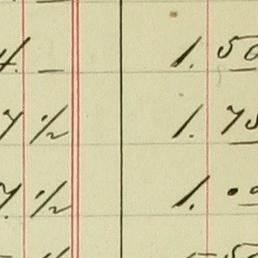 4. — 1. 50
7 ½ 1. 75
7. ½ 1. 00